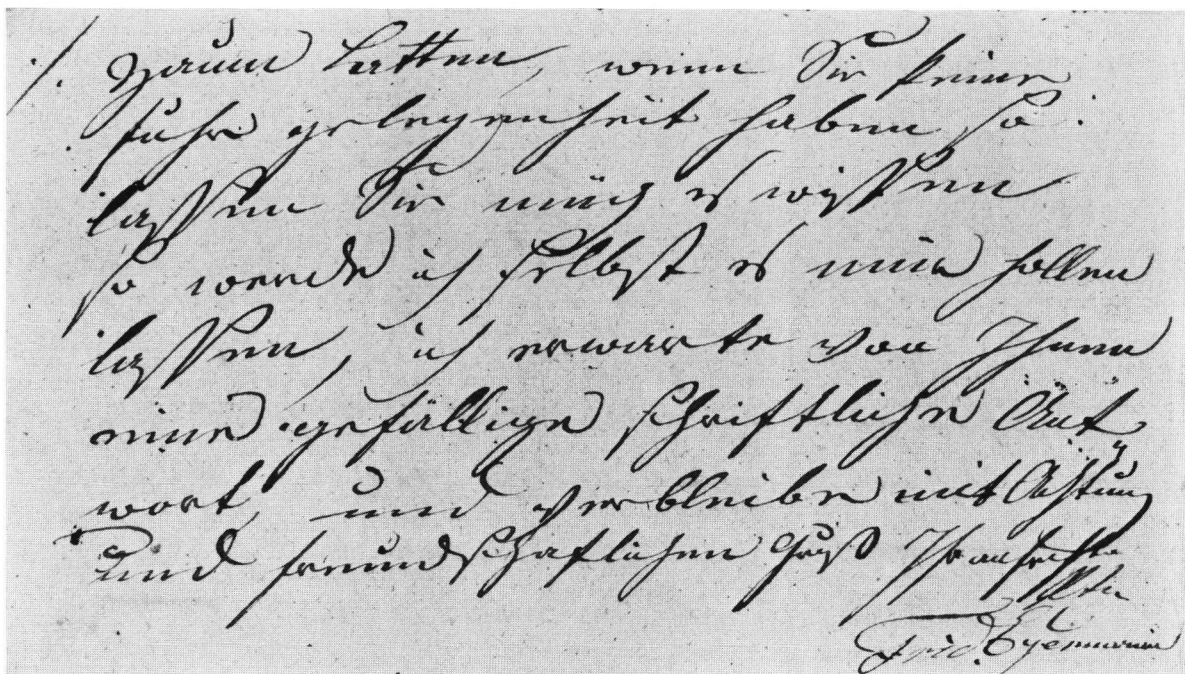 Zaun Latten, wenn Sie keine
fuhr gelegenheit haben so
lassen Sie mich es wissen
so werde ich selbst es mir hollen
lassen, ich erwarte von Ihnen
eine gefällige schriftliche Ant
wort, und verbleibe mit Achtung
und freundschaftlichen Gruß Ihr
Frid.